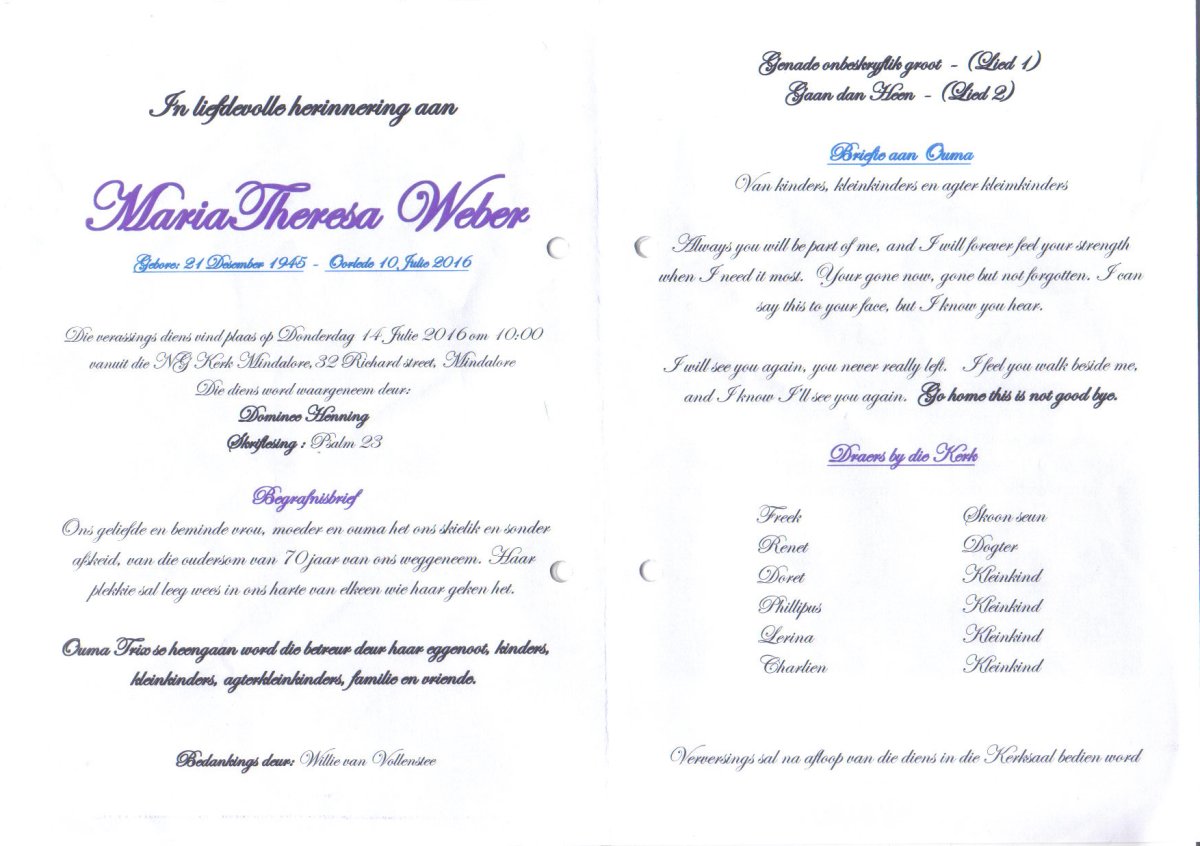 In liefdevolle herinnering aan
MariaTheresa Weber
Gebore: 21 Desember 1945 - Oorlede 10 Julie 2016
Die verassings diens vind plaas op Donderdag 14 Julie 2016 om 10:00
vanuit die NG Kerk Mindalore, 32 Richard street, Mindalore
Die diens word waargeneem deur:
Dominee Henning
Skriflesing : Psalm 23
Begrafnisbrief
Ons geliefde en beminde vrou, moeder en ouma het ons skielik en sonder
afskeid, van die oudersom van 70 jaar van ons weggeneem. Haar
plekkie sal leeg wees in ons harte van elkeen wie haar geken het.
Ouma Trix se heengaan word die betreur deur haar eggenoot, kinders,
kleinkinders, agterkleinkinders, familie en vriende.
Bedankings deur: Willie van Vollenstee
Genade onbeskryflik groot - (Lied 1)
Gaan dan Heen - (Lied 2)
Briefie aan Ouma
Van kinders, kleinkinders en agter kleimkinders
Always you will be part of me, and I will forever feel your strength
when I need it most. Your gone now, gone but not forgotten. I can
say this to your face, but I know you hear.
I will see you again, you never really left. I feel you walk beside me,
and I know I'll see you again. Go home this is not good bye.
Draers by die Kerk
Freek Skoon seun
Renet Dogter
Doret Kleinkind
Phillipus Kleinkind
Lerina Kleinkind
Charlien Kleinkind
Verversings sal na afloop van die diens in die Kerksaal bedien word